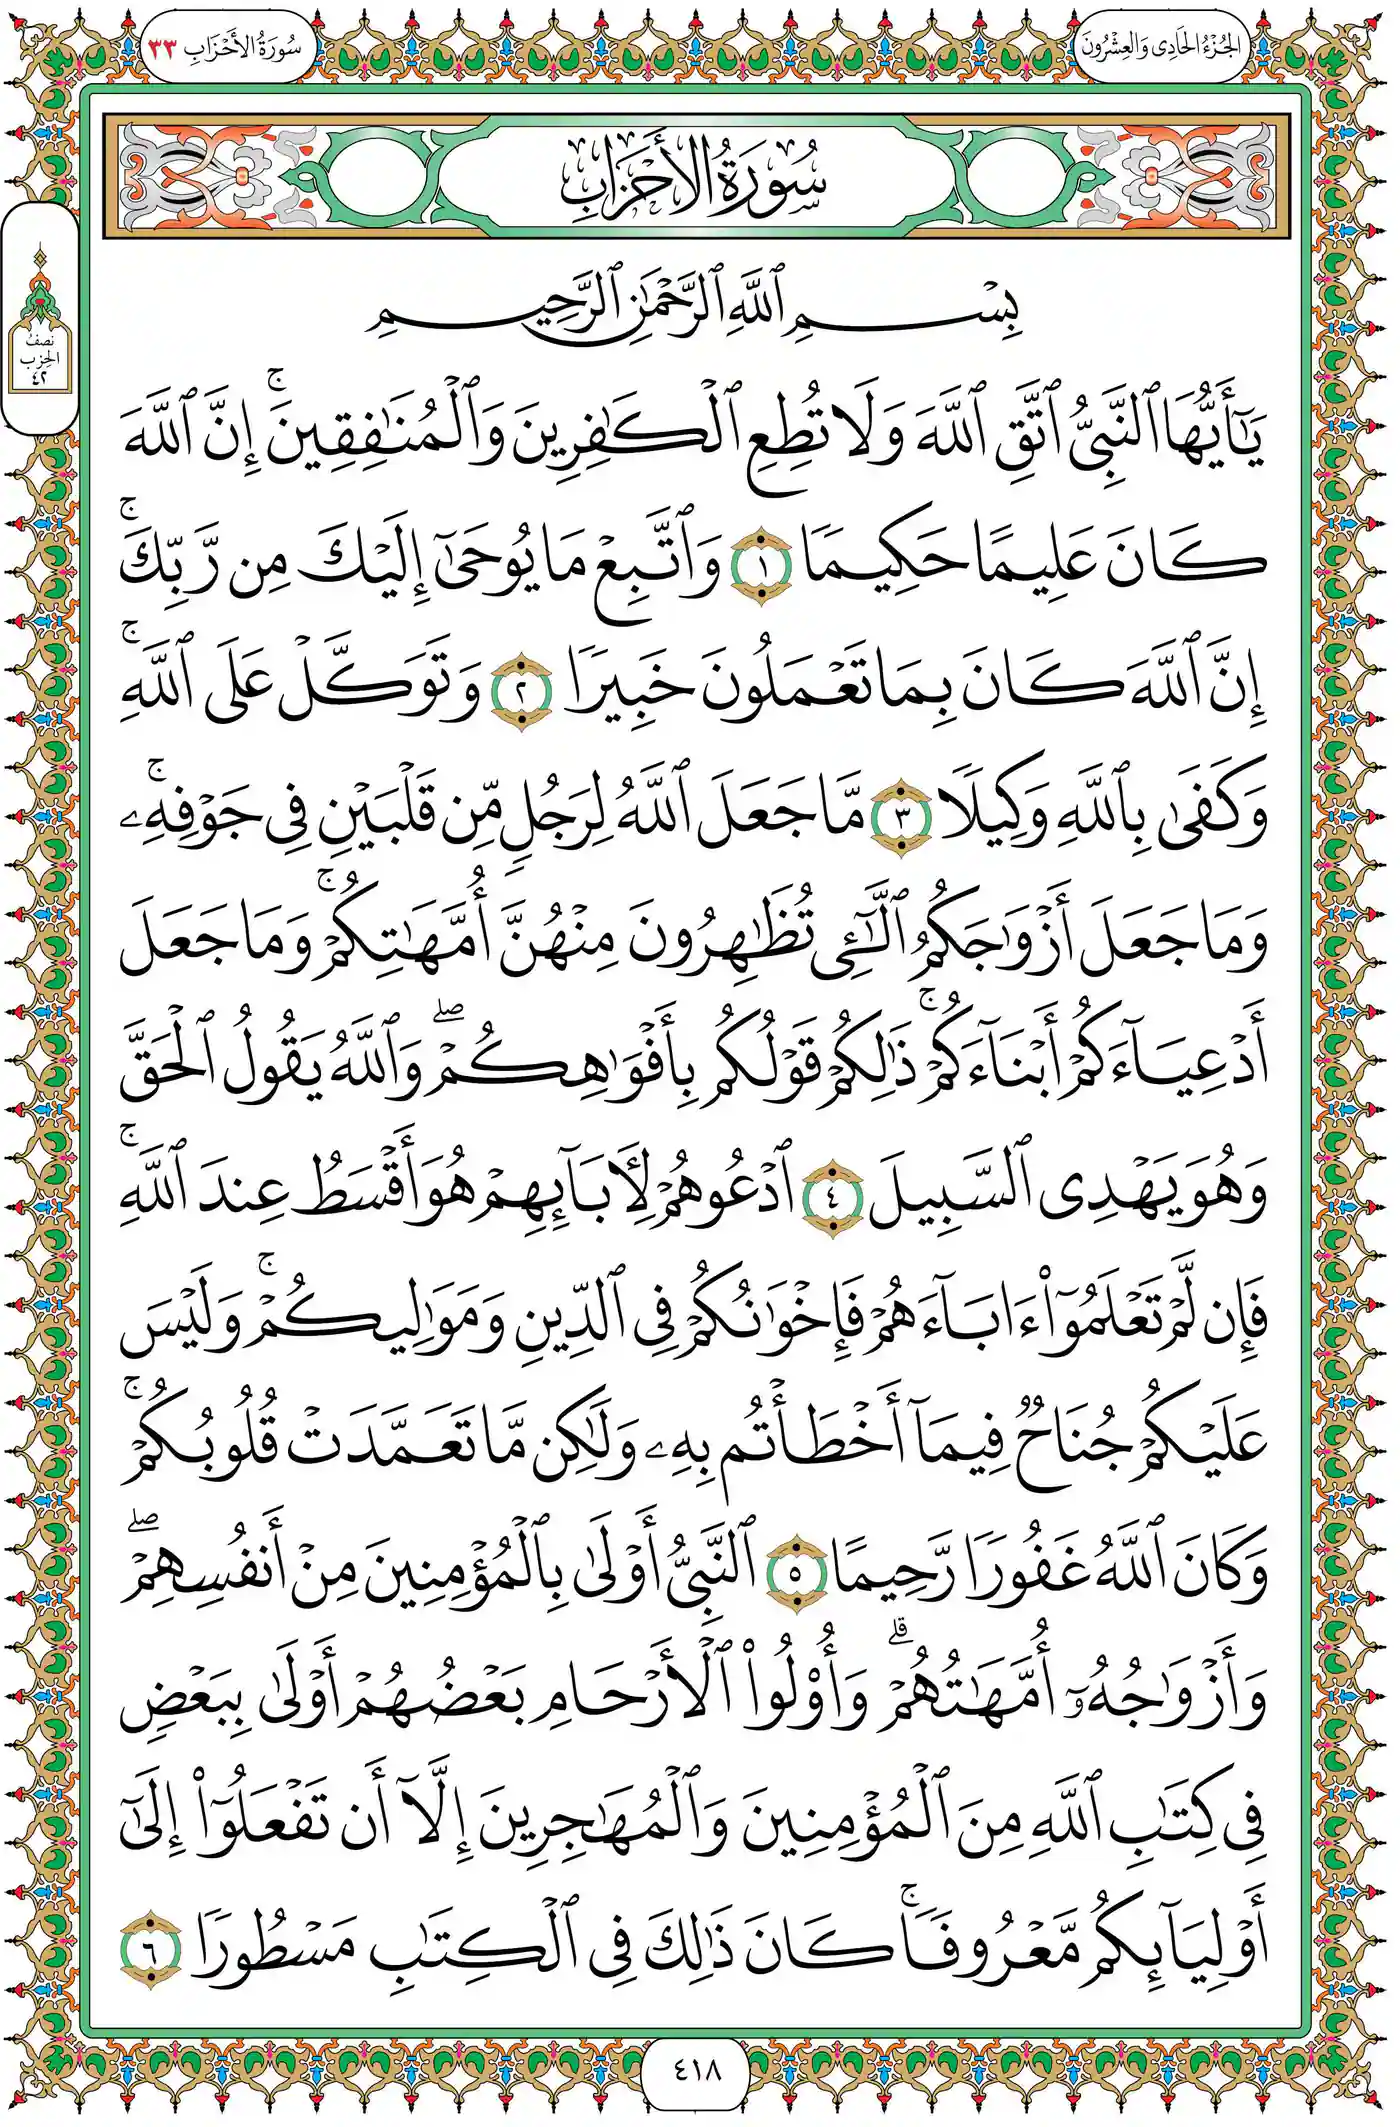 الجُزْءُ الحَادِى وَالعِشْرُونَ
سُورَةُ الأَحْزَابِ ٣٣
سُورَةُ الأَحْزَابِ
بِسْمِ ٱللَّهِ ٱلرَّحْمَٰنِ ٱلرَّحِيمِ
نصف
الحزب
٤٢
يَٰٓأَيُّهَا ٱلنَّبِىُّ ٱتَّقِ ٱللَّهَ وَلَا تُطِعِ ٱلْكَٰفِرِينَ وَٱلْمُنَٰفِقِينَۚ إِنَّ ٱللَّهَ
كَانَ عَلِيمًا حَكِيمًا ١ وَٱتَّبِعْ مَا يُوحَىٰٓ إِلَيْكَ مِن رَّبِّكَۚ
إِنَّ ٱللَّهَ كَانَ بِمَا تَعْمَلُونَ خَبِيرًا ٢ وَتَوَكَّلْ عَلَى ٱللَّهِۚ
وَكَفَىٰ بِٱللَّهِ وَكِيلًا ٣ مَّا جَعَلَ ٱللَّهُ لِرَجُلٍ مِّن قَلْبَيْنِ فِى جَوْفِهِۦۚ
وَمَا جَعَلَ أَزْوَٰجَكُمُ ٱلَّٰٓـِٔى تُظَٰهِرُونَ مِنْهُنَّ أُمَّهَٰتِكُمْۚ وَمَا جَعَلَ
أَدْعِيَآءَكُمْ أَبْنَآءَكُمْۚ ذَٰلِكُمْ قَوْلُكُم بِأَفْوَٰهِكُمْۖ وَٱللَّهُ يَقُولُ ٱلْحَقَّ
وَهُوَ يَهْدِى ٱلسَّبِيلَ ٤ ٱدْعُوهُمْ لِأٓبَآئِهِمْ هُوَ أَقْسَطُ عِندَ ٱللَّهِۚ
فَإِن لَّمْ تَعْلَمُوٓا۟ ءَابَآءَهُمْ فَإِخْوَٰنُكُمْ فِى ٱلدِّينِ وَمَوَٰلِيكُمْۚ وَلَيْسَ
عَلَيْكُمْ جُنَاحٌ فِيمَآ أَخْطَأْتُم بِهِۦ وَلَٰكِن مَّا تَعَمَّدَتْ قُلُوبُكُمْۚ
وَكَانَ ٱللَّهُ غَفُورًا رَّحِيمًا ٥ ٱلنَّبِىُّ أَوْلَىٰ بِٱلْمُؤْمِنِينَ مِنْ أَنفُسِهِمْۖ
وَأَزْوَٰجُهُۥٓ أُمَّهَٰتُهُمْۗ وَأُو۟لُوا۟ ٱلْأَرْحَامِ بَعْضُهُمْ أَوْلَىٰ بِبَعْضٍ
فِى كِتَٰبِ ٱللَّهِ مِنَ ٱلْمُؤْمِنِينَ وَٱلْمُهَٰجِرِينَ إِلَّآ أَن تَفْعَلُوٓا۟ إِلَىٰٓ
أَوْلِيَآئِكُم مَّعْرُوفًاۚ كَانَ ذَٰلِكَ فِى ٱلْكِتَٰبِ مَسْطُورًا ٦
٤١٨